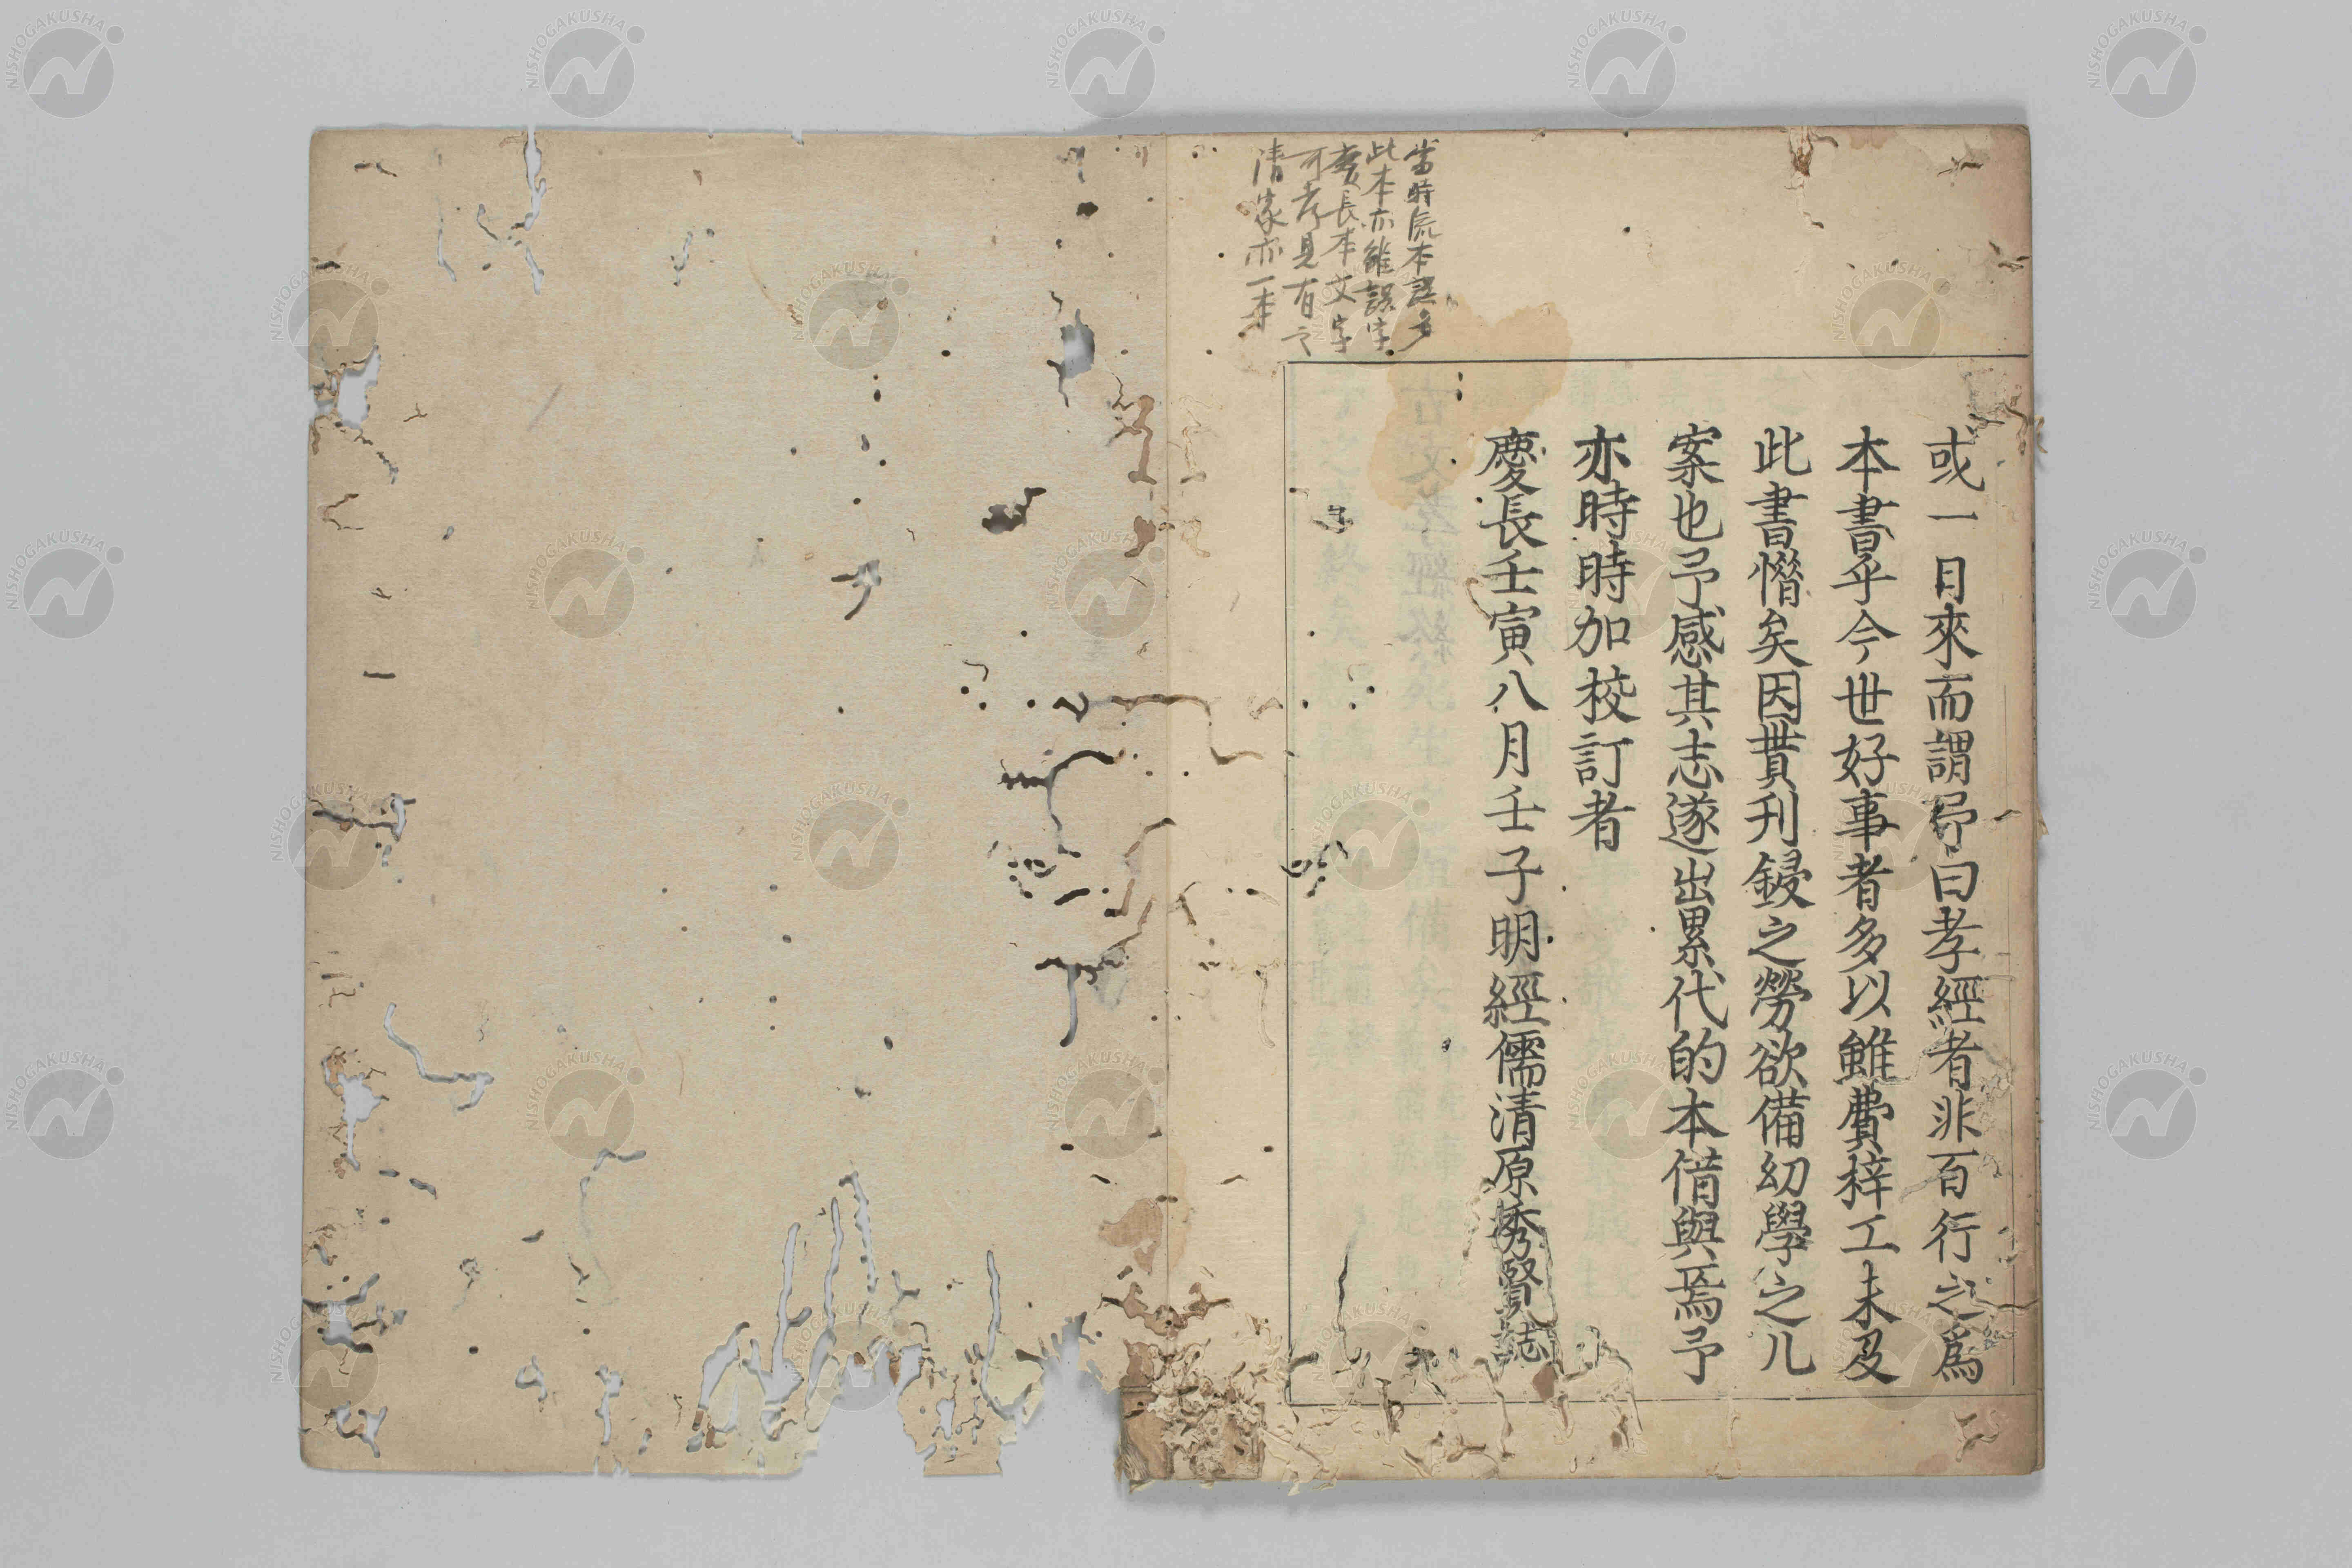 或一日來而謂予曰孝經者非百行之爲
本書乎今世好事者多以雖費梓工未及
此書憯矣因貰刊鋟之勞欲備幼學之几
案也予感其志遂出累代的本借與焉予
亦時時加校訂者
慶長壬寅八月壬子明經儒清原秀賢誌
當時流本誤多
此本亦雖誤字
慶長本文字
可考見有之
清家亦一本
NISHOGAKUSHA